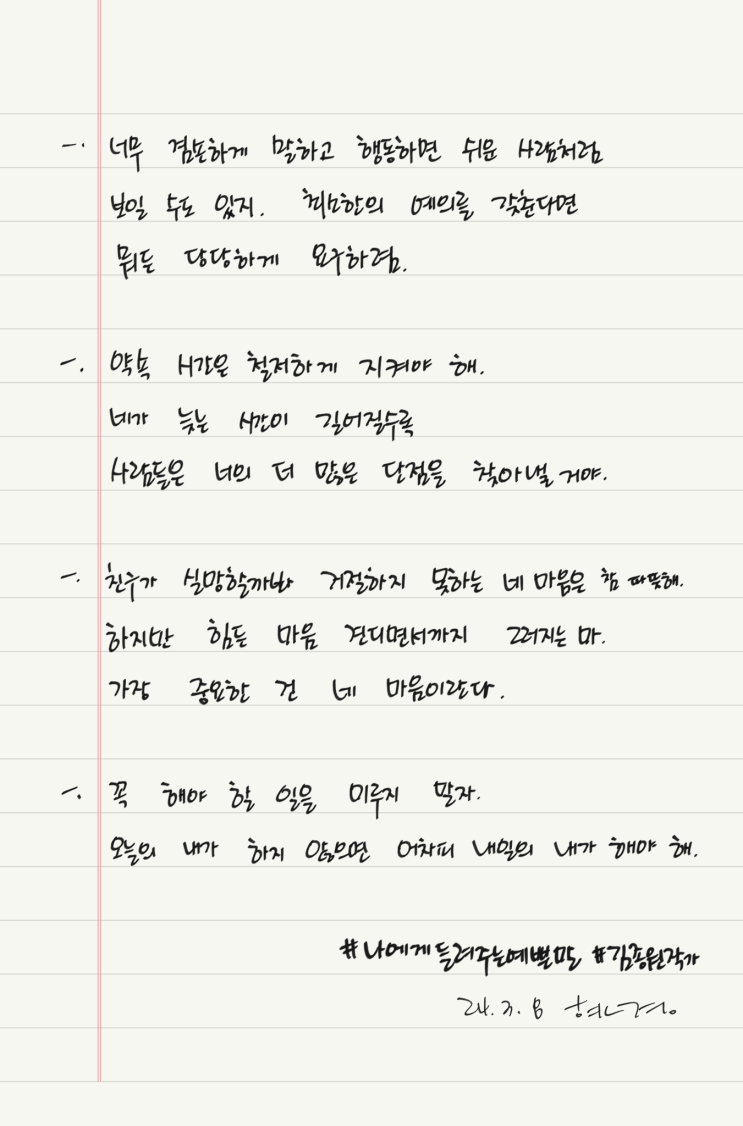 一. 너무 겸손하게 말하고 행동하면 쉬운 사람처럼
보일 수도 있지. 최소한의 예의를 갖춘다면
뭐든 당당하게 요구하렴.
一. 약속 시간은 철저하게 지켜야 해.
네가 늦는 시간이 길어질수록
사람들은 너의 더 많은 단점을 찾아낼 거야.
一. 친구가 실망할까봐 거절하지 못하는 네 마음은 참 따뜻해.
하지만 힘든 마음 견디면서까지 그러지는 마.
가장 중요한 건 네 마음이란다.
一. 꼭 해야 할 일을 미루지 말자.
오늘의 내가 하지 않으면 어차피 내일의 내가 해야 해.
#나에게들려주는예쁜말 #김종원작가
24. 3. 8